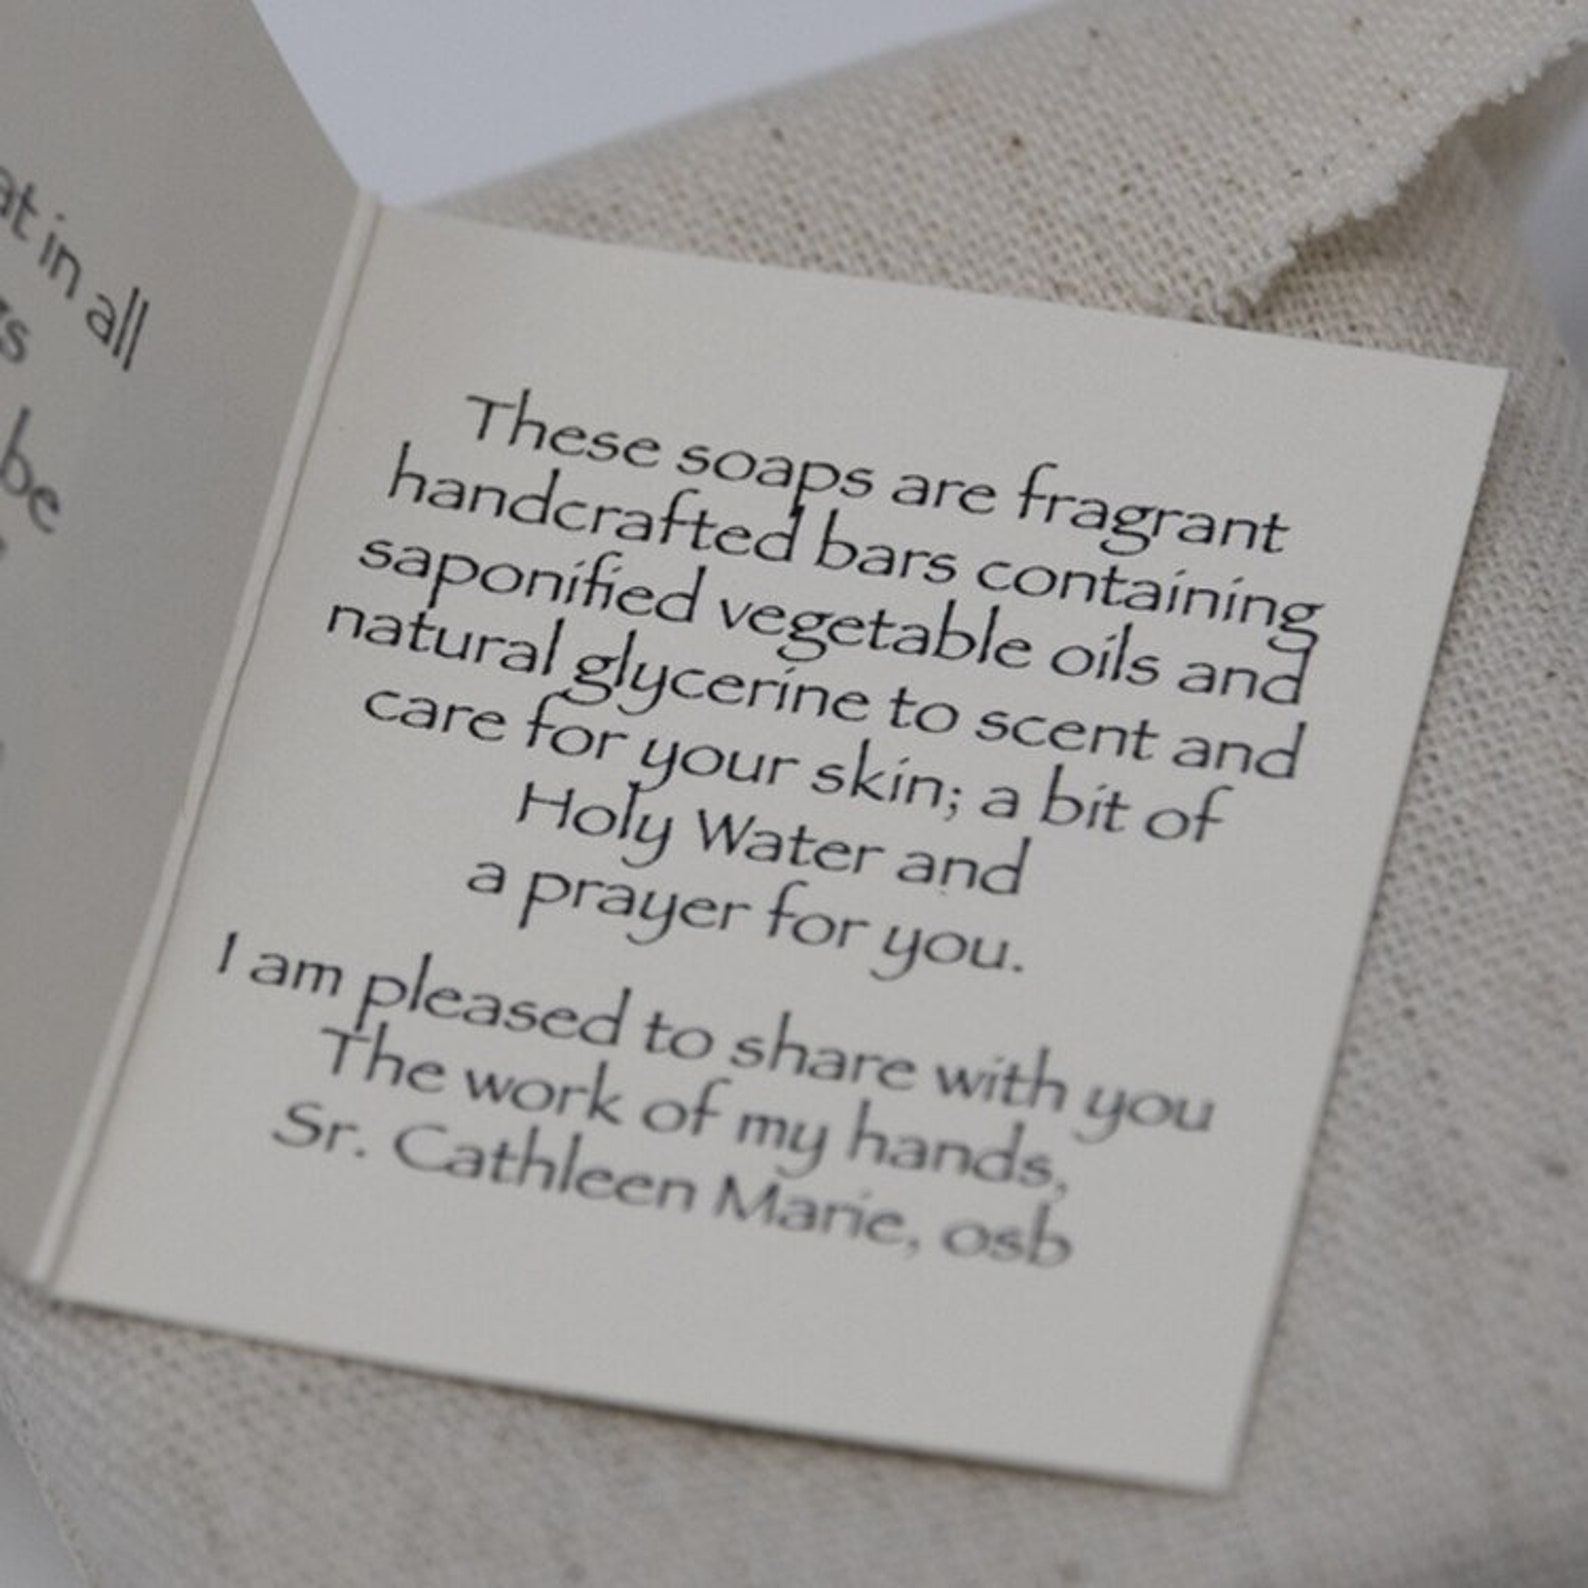 at in all
be
These soaps are fragrant
handcrafted bars containing
saponified vegetable oils and
natural glycerine to scent and
care for your skin; a bit of
Holy Water and
a prayer for you.
I am pleased to share with you
The work of my hands,
Sr. Cathleen Marie, osb